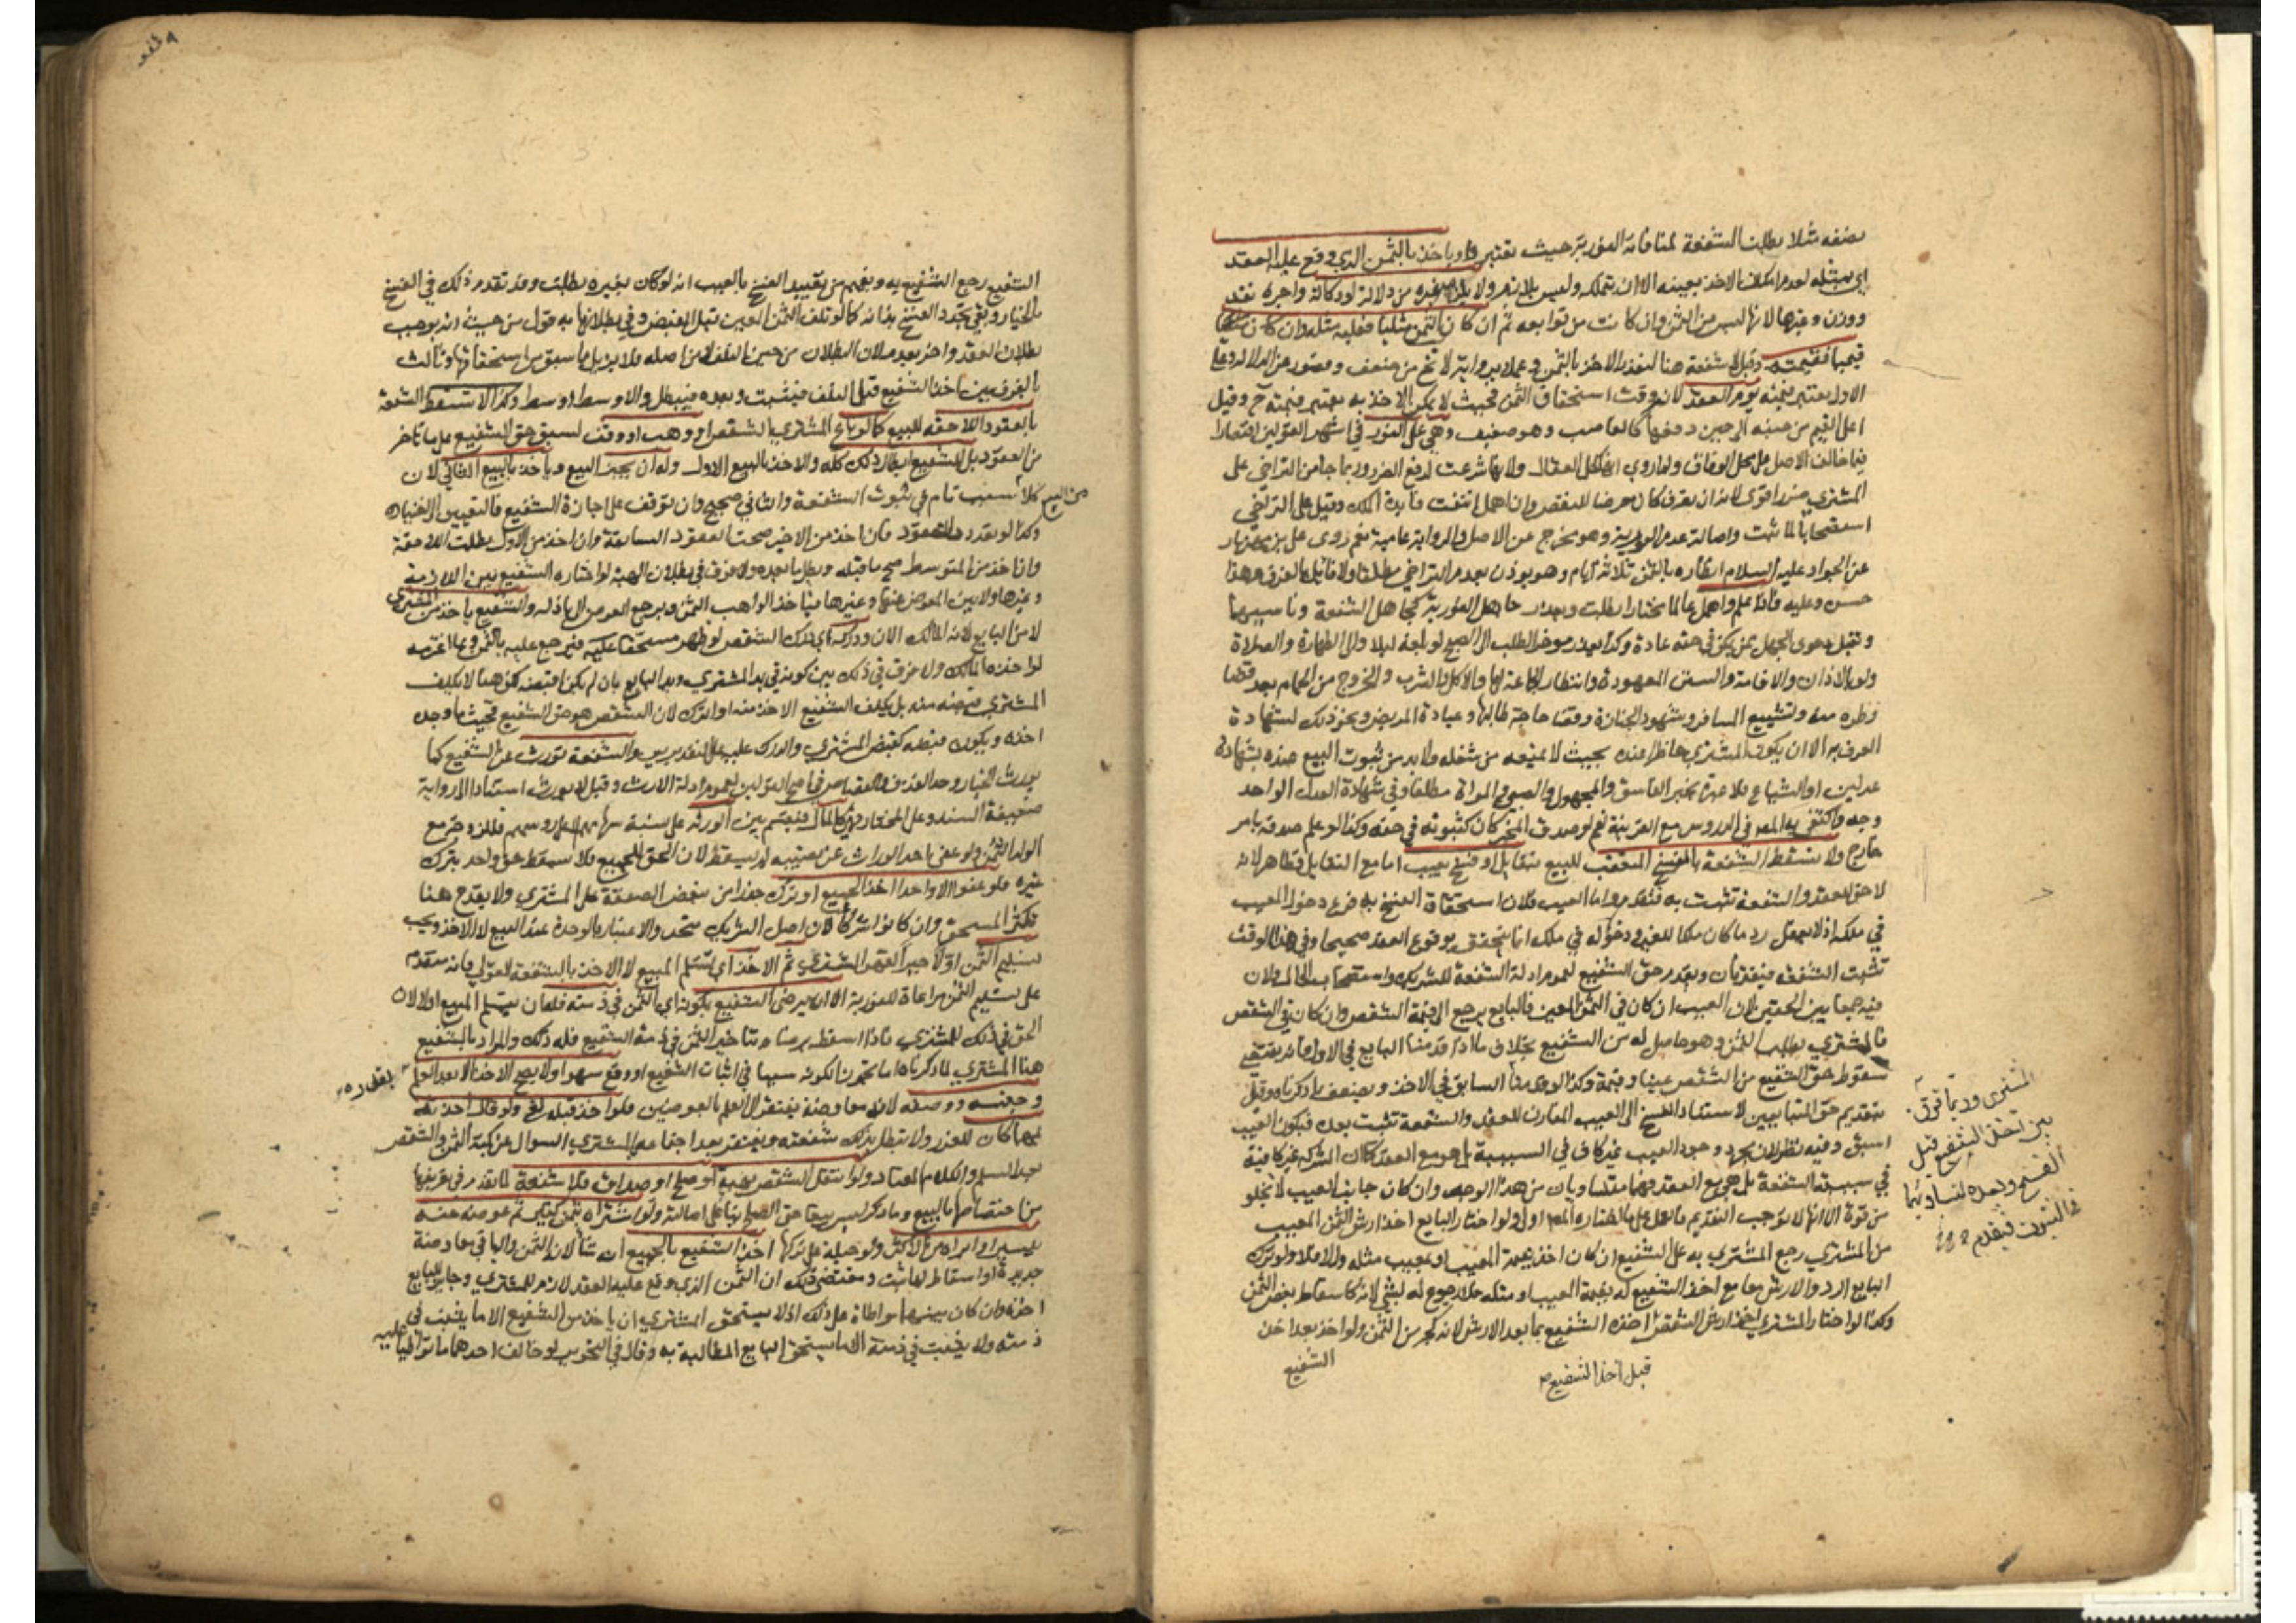 نصفه مثلا بطلت الشفعة لمنافاته الفورية حيث نعتبرها وياخذ بالثمن الذي وقع عليه العقد
اي بمثله لعدم امكان الاخذ بعينه الا ان يتملكه وليس بلازم ولا يلزمه غيره من دلالة او وكالة واجرة نقد
ووزن وغيرها لانها ليست من الثمن وان كانت من توابعه ثم ان كان الثمن مثليا فعليه مثله وان كان
قيميا فقيمته وقيل لا شفعة هنا لتعذر الاخذ بالثمن وعملا برواية لا تخ من ضعف وقصور عن الدلالة وعلى
الاول يعتبر قيمته يوم العقد لانه وقت استحقاق الثمن فحيث لا يمكن الاخذ به يعتبر قيمته ح وقيل
اعلى القيم من حينه الى حين دفعها كالغاصب وهو ضعيف وهي على الفور في اشهر القولين اقتصارا
فيما خالف الاصل على محل الوفاق ولما روي انها كحل العقال ولانها شرعت لدفع الضرر وربما جاء من التراخي على
المشتري ضرر اقوى لانه ان تصرف كان معرضا للنقض وان اهمل انتفت فايدة الملك وقيل على التراخي
استصحابا لما ثبت واصالة عدم الفورية وهو مخرج عن الاصل والرواية عامية نعم روى علي بن مهزيار
عن الجواد عليه السلام انظاره بالثمن ثلاثة ايام وهو يوذن بعدم التراخي مطلقا ولا قائل بالفرق وهذا
حسن وعليه فاذا علم واهمل عالما مختارا بطلت ويعذر جاهل الفورية كجاهل الشفعة وناسيهما
وتقبل دعوى الجهل ممن يمكن في حقه عادة وكذا يعذر موخر الطلب الى الصبح لو بلغه ليلا والى الطهارة والصلاة
ولو بالاذان والاقامة والسنن المعهودة وانتظار الجماعة لها والاكل والشرب والخروج من الحمام بعد قضا
وطره منه وتشييع المسافر وشهود الجنازة وقضا حاجة طالبها وعيادة المريض ونحو ذلك لشهادة
العرف به الا ان يكون المشتري حاضرا عنده بحيث لا يمنعه من شغله ولا بد من ثبوت البيع عنده بشهادة
عدلين او الشياع فلا عبرة بخبر الفاسق والمجهول والصبي والمراة مطلقا وفي شهادة العدل الواحد
وجه واكتفى به المص في الدروس مع القرينة نعم لو صدق المخبر كان كثبوته في حقه وكذا لو علم صدقه بامر
خارج ولا تسقط الشفعة بالفسخ المتعقب للبيع بتقايل او فسخ بعيب اما مع التقايل فظاهر لانه
لاحق للعقد والشفعة تثبت به فتقدم واما العيب فلان استحقاق الفسخ به فرع دخول المعيب
في ملكه اذ لا يعقل رد ما كان ملكا للغير ودخوله في ملكه انما يتحقق بوقوع العقد صحيحا وفي هذا الوقت
تثبت الشفعة فيقترنان ويقدم حق الشفيع لعموم ادلة الشفعة للشريك واستصحاب الحال ولان
فيه جمعا بين الحقين لان العيب ان كان في الثمن المعين فالبايع يرجع الى قيمة الشقص وان كان في الشقص
فالمشتري يطلب الثمن وهو حاصل له من الشفيع بخلاف ما اذا قدمنا البايع في الاول فانه يقتضي
سقوط حق الشفيع من الشقص عينا وقيمة وكذا لو قدمنا السابق في الاخذ ويضعف بما ذكرناه وقيل
بتقديم حق المتبايعين لاستناد الفسخ الى العيب المقارن للعقد والشفعة تثبت بعده فيكون العيب
اسبق وفيه نظر لان مجرد وجود العيب غير كاف في السببية بل هو مع العقد كما ان الشركة غير كافية
في سببية الشفعة بل هي مع العقد فهما متساويان من هذا الوجه وان كان جانب العيب لا يخلو
من قوة الا انها لا توجب التقديم فالعمل على ما اختاره المص اولى ولو اختار البايع اخذ ارش الثمن المعيب
من المشتري رجع المشتري به على الشفيع ان كان اخذ بقيمة المعيب او بمعيب مثله والا فلا ولو ترك
البايع الرد والارش معا مع اخذ الشفيع له بقيمة المعيب او مثله فلا رجوع له بشي لانه كاسقاط بعض الثمن
وكذا لو اختار المشتري اخذ ارش الشقص اخذه الشفيع بما بعد الارش لانه كجزء من الثمن ولو اخذه بعد اخذ
قبل اخذ الشفيع
الشفيع
المشتري وربما فرق
بين اخذ الشفيع قبل
الفسخ وبعده لتساويهما
في الثبوت فيقدم
الشفيع رجع الشفيع به ويفهم من تقييد الفسخ بالعيب انه لو كان بغيره بطلت وقد تقدم ذلك في الفسخ
بالخيار وبقي تجدد الفسخ بذاته كما لو تلف الثمن المعين قبل القبض وفي بطلانها به قول من حيث انه يوجب
بطلان العقد واخر بعدمه لان البطلان من حين التلف لا من اصله فلا يزيل ما سبق من استحقاقها وثالث
بالفرق بين اخذ الشفيع قبل التلف فيثبت وبعده فيبطل والاوسط اوسط وكذا لا تسقط الشفعة
بالعقود اللاحقة للبيع كما لو باع المشتري الشقص او وهب او وقف لسبق حق الشفيع على ما تاخر
من العقود بل للشفيع ابطال ذلك كله والاخذ بالبيع الاول وله ان يجيز البيع وياخذ بالبيع الثاني لان
كلا من البيعين سبب تام في ثبوت الشفعة والثاني صحيح وان توقف على اجازة الشفيع فالتعيين الى اختياره
وكذا لو تعددت العقود فان اخذ من الاخير صحت العقود السابقة وان اخذ من الاول بطلت اللاحقة
وان اخذ من المتوسط صح ما قبله وبطل ما بعده ولا فرق في بطلان الهبة لو اختاره الشفيع بين اللازمة
وغيرها ولا بين المعوض عنها وغيرها فياخذ الواهب الثمن ويرجع العوض الى باذله والشفيع ياخذ من المشتري
لا من البايع لانه المالك الان ودركه اي درك الشقص لو ظهر مستحقا عليه فيرجع عليه بالثمن وبما اغترمه
لو اخذه المالك ولا فرق في ذلك بين كونه في يد المشتري ويد البايع بان لم يكن اقبضه لكن هنا لا يكلف
المشتري قبضه منه بل يكلف الشفيع الاخذ منه او الترك لان الشقص هو حق الشفيع فحيث ما وجده
اخذه ويكون قبضه كقبض المشتري والدرك عليه على التقديرين والشفعة تورث عن الشفيع كما
يورث الخيار وحد القذف والقصاص في اصح القولين لعموم ادلة الارث وقيل لا تورث استنادا الى رواية
ضعيفة السند وعلى المختار فهي كالمال فتقسم بين الورثة على نسبة سهامهم فللزوجة مع
الولد الثمن ولو عفى احد الوراث عن نصيبه لم يسقط لان الحق للجميع فلا يسقط حق واحد بترك
غيره فلو عفوا الا واحدا اخذ الجميع او ترك حذرا من تبعض الصفقة على المشتري ولا يقدح هنا
تكثر المستحق وان كانوا شركا لان اصل الشريك متحد والاعتبار بالوحدة عند البيع لا الاخذ ويجب
تسليم الثمن اولا جبرا لقهر المشتري ثم الاخذ اي تسلم المبيع لا الاخذ بالشفعة القولي فانه متقدم
على تسليم الثمن مراعاة للفورية الا ان يرضى الشفيع بكونه اي الثمن في ذمته فله ان يتسلم المبيع اولا لان
الحق في ذلك للمشتري فاذا اسقطه برضاه بتاخير الثمن في ذمة الشفيع فله ذلك والمراد بالشفيع
هنا المشتري لما ذكرناه اما تجوزا لكونه سببا في اثبات الشفيع او وقع سهوا ولا يصح الاخذ الا بعد العلم بقدره
وجنسه ووصفه لانه معاوضة يفتقر الى العلم بالعوضين فلو اخذ قبله لغى ولو قال اخذته
بمهما كان للغرر ولا تبطل بذلك شفعته ويغتفر بعد اجتماعه بالمشتري السوال عن كمية الثمن والشقص
بعد السلم والكلام المعتاد ولو انتقل الشقص بهبة او صلح او صداق فلا شفعة لما تقدم في تعريفها
من اختصاصها بالبيع وما ذكر ليس بيعا حتى الصلح بناء على اصالته ولو اشتراه بثمن كثير ثم عوضه عنه
بيسير او ابراه من الاكثر ولو حيلة على تركها اخذ الشفيع بالجميع ان شا لانه الثمن والباقي معاوضة
جديدة او اسقاط لما ثبت ومقتضى ذلك ان الثمن الذي وقع عليه العقد لازم للمشتري وجايز للبايع
اخذه وان كان بينهما مواطاة على ذلك اذ لا يستحق المشتري ان ياخذ من الشفيع الا ما يثبت في
ذمته ولا يثبت في ذمته الا ما يستحق البايع المطالبة به وقال في التحرير لو خالف احدهما ما تواطيا عليه